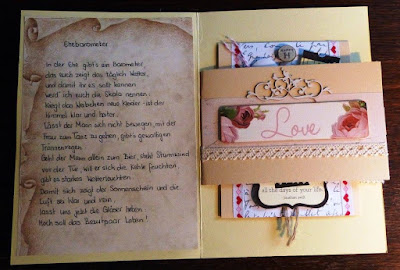 Ehebarometer
in der Ehe gibt's ein Barometer,
das euch zeigt das täglich Wetter,
und damit ihr es sollt kennen
werd ich euch die Skala nennen.
Kriegt das Weibchen neue Kleider - ist der
Himmel klar und heiter.
Lässt der Mann sich nicht bewegen, mit der
Frau zum Tanz zu gehen, gibt's gewaltigen
Tränenregen.
Geht der Mann allein zum Bier, steht Sturmwind
vor der Tür, will er sich die Kehle feuchten,
gibt es starkes Wetterleuchten.
Damit euch zeigt der Sonnenschein und die
Luft sei klar und rein
lasst uns jetzt die Gläser heben
Hoch soll das Brautpaar Leben!
Love
all the days of your life